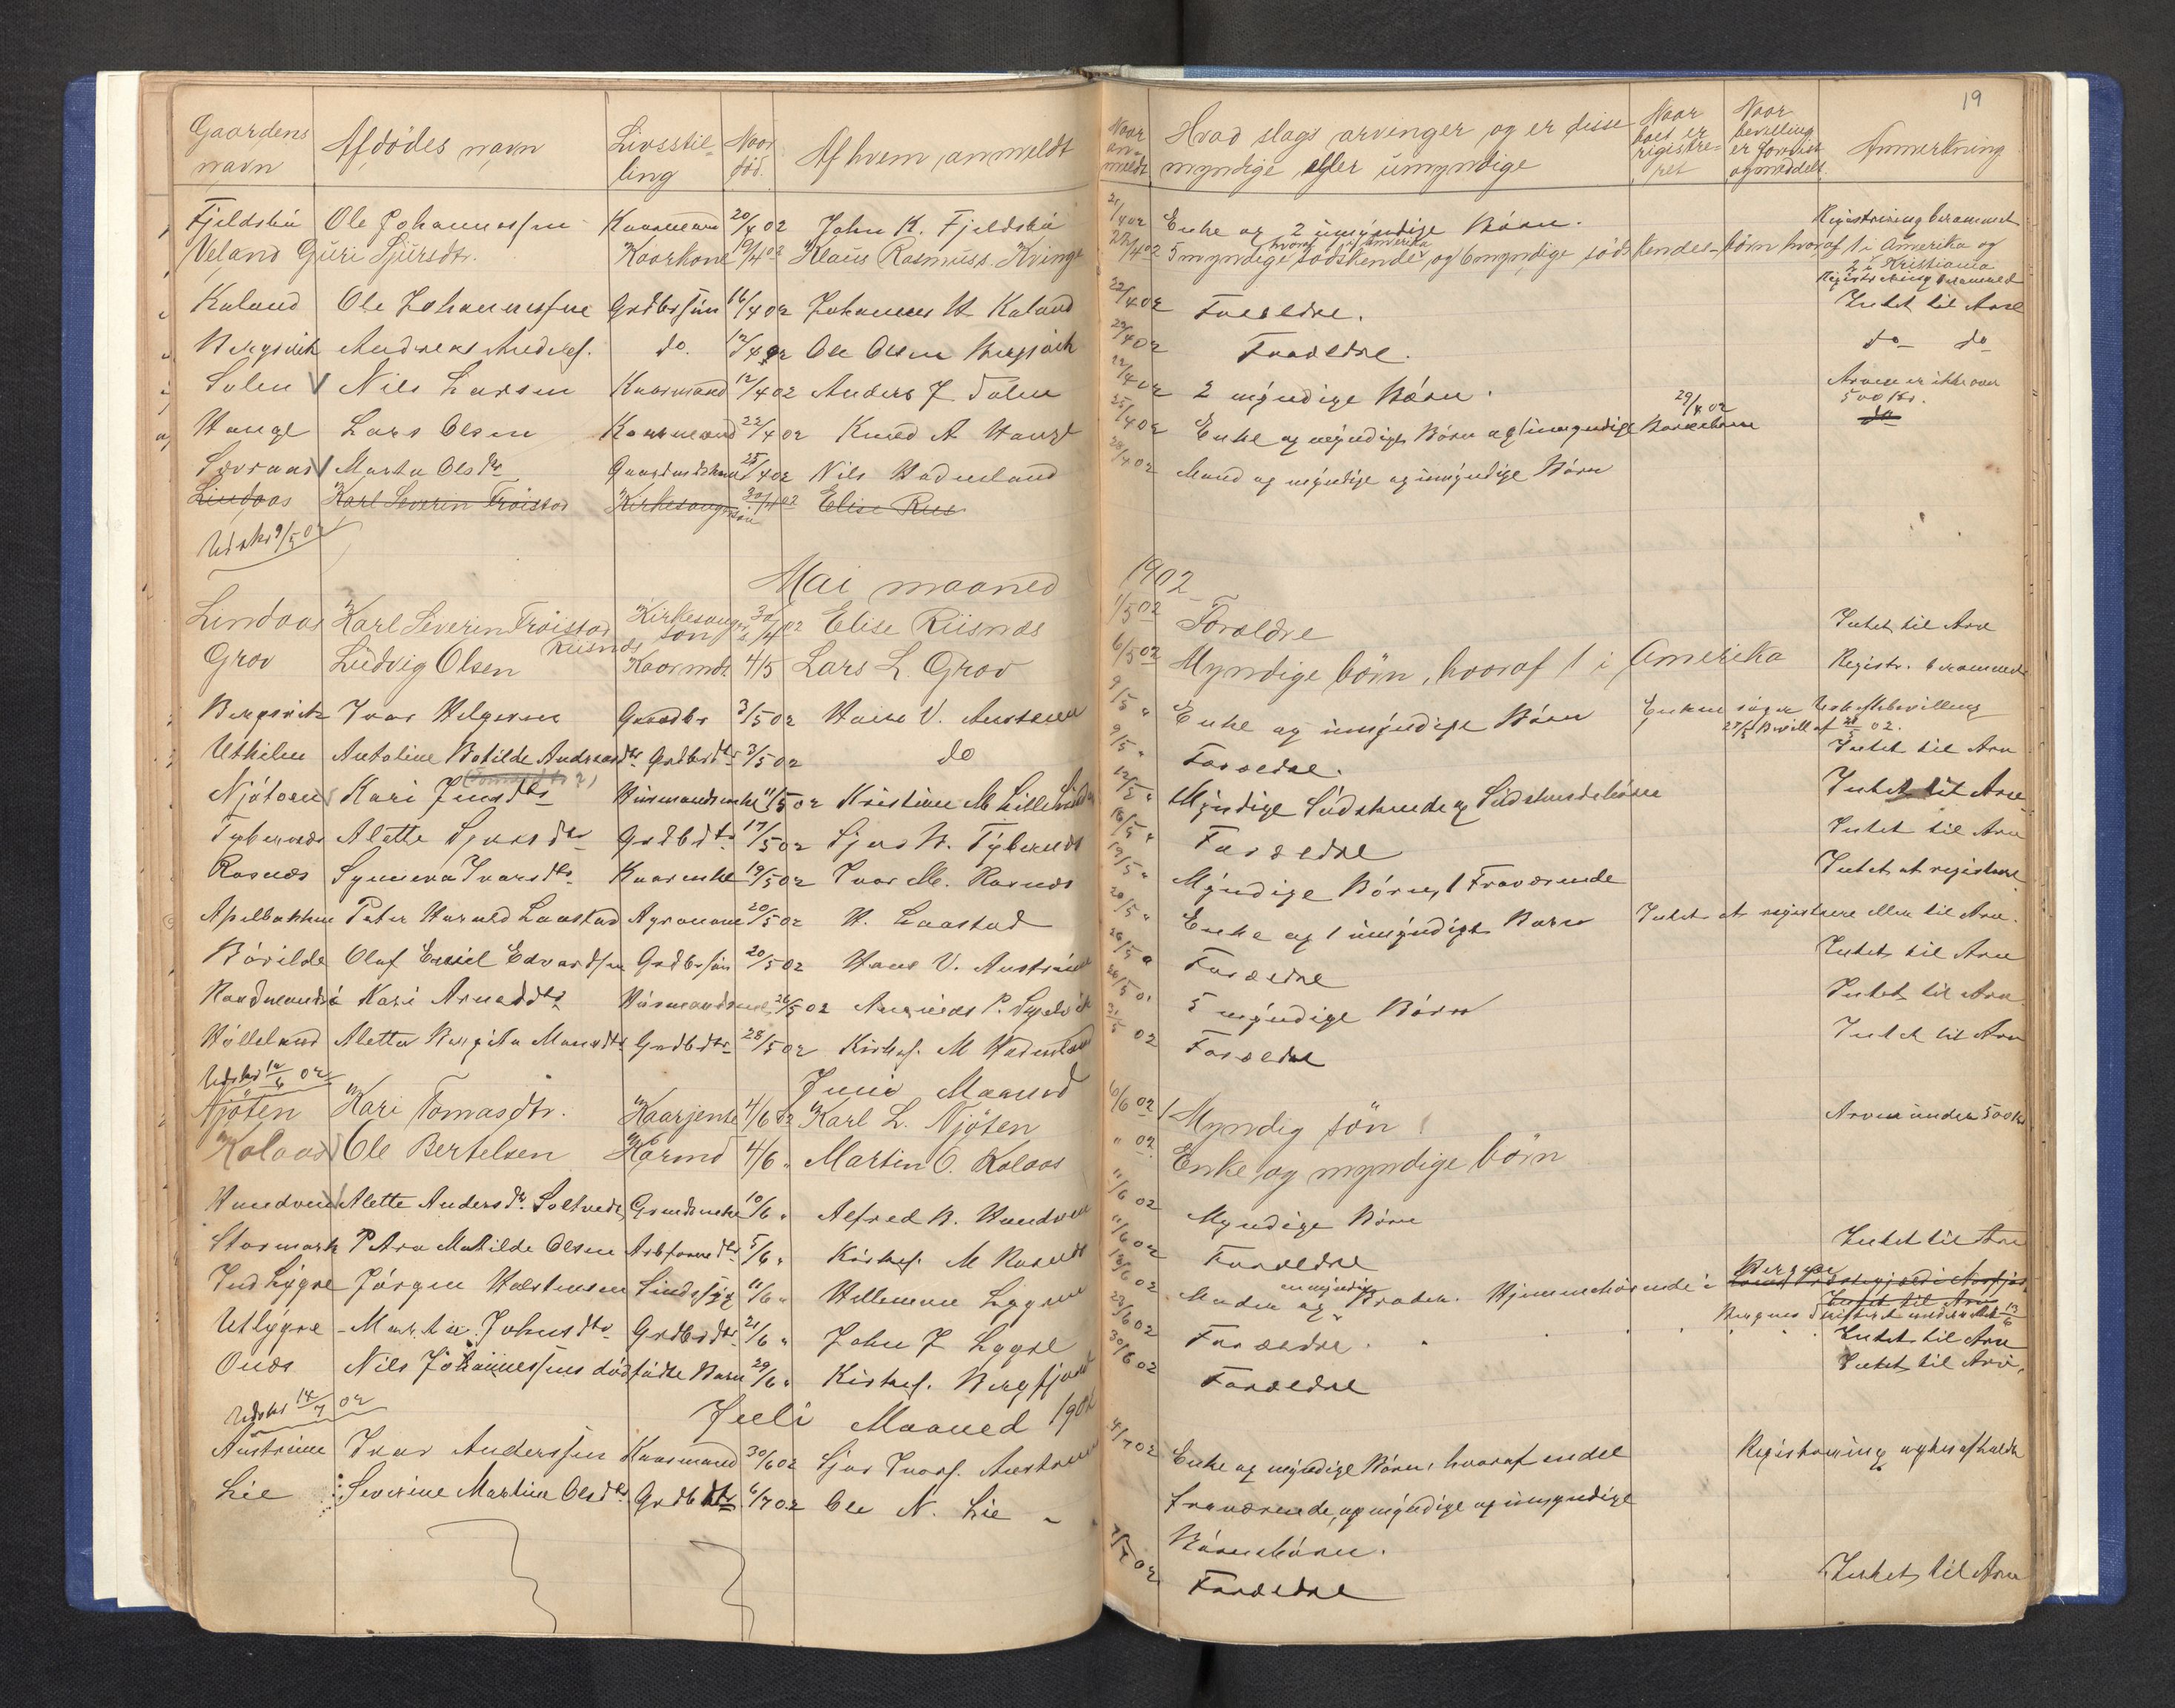 19
Gaardens navn | Afdödes navn | Livsstilling | Naar död. | Af hvem anmeldt | Naar anmeldt | Hvad slags arvinger og er disse myndige eller umyndige | Naar boet er registreret | Naar bevilling er | Anmerkning
Fjeldsbö | Ole Johannessen | Kaarmand | 20/4 02 | John K. Fjeldsbö | 21/4 02 | Enke og 2 umyndige Börn. | Registrering berammet
Veland | Guri Sjursdtr. | Kaarkone | 19/4 02 | Klaus Rasmuss. Kvinge | 22/4 02 | 5 myndige södskende, hvoraf 1 i Amerika og 6 myndige södskendes-börn hvoraf 1 i Amerika og 2 i Kristiania
Registrering berammet
Kaland | Ole Johannessen | Grdbrsön | 16/4 02 | Johannes H. Kaland | 22/4 02 | Forældre. | Intet til Arv
Bergsvik | Andreas Andersf. | do. | 12/4 02 | Ole Olsen Bergsvik | 22/4 02 | Forældre. | do do
Solem | Nils Larsen | Kaarmand | 12/4 02 | Anders J Solem | 22/4 02 | 2 myndige Börn. | Arven er ikke over 500 Kr.
Hauge | Lars Olsen | Kaarmand | 22/4 02 | Knud A Hauge | 25/4 02 | Enke og myndige Börn og umyndige Barnebarn | 29/4 02 | do
Sævraas | Marta Olsdtr | 25/4 02 | Nils Hadmeland | 28/4 02 | Mand og myndige og umyndige Börn
Lindaas | Karl Severin Troistad | Kirkesangersön | 30/4 02 | Elise Riis
Udskr 9/5 02
Mai maaned 1902
Lindaas | Karl Severin Troistad Riisnæs | Kirkesangers sön | 30/4 02 | Elise Riisnæs | 1/5 02 | Forældre | Intet til Arv
Grov | Ludvig Olsen | Kaarmd. | 4/5 | Lars L. Grov | 6/5 02 | Myndige börn, hvoraf 1 i Amerika | Registr. berammet
Bergsvik | Ivar Helgesen | Gaardbr | 3/5 02 | Hans V. Austrem | 9/5 " | Enke og umyndige Börn | Enken söger Uskiftebevilling
27/5 Bevill af 21/5 02.
Utkilen | Antoline Botilde Andreasdtr | Grdbrdtr | 3/5 02 | do | 9/5 " | Forældre. | Intet til Arv
Njöten | Kari Jensdtr (Tomasdtr?) | Husmandsenke | 11/5 02 | Kristian M Lille | 12/5 " | Myndige Södskende og Södskendebörn | Intet til Arv
Tyberneds | Alette Sjursdtr | Grdbdtr. | 17/5 02 | Sjur N. Tyberneds | 16/5 " | Forældre | Intet til Arv
Rosnæs | Synneva Ivarsdtr | Kaarenke | 19/5 02 | Ivar M. Rosnæs | 19/5 " | Myndige Börn, 1 Fraværende | Intet at registrere
Apelbakken | Peter Harald Laastad | Agronom | 20/5 02 | H. Laastad | 20/5 " | Enke og 1 umyndigt Barn | Intet at registrere eller til Arv.
Börilde | Olaf Emil Edvardsen | Grdbrsön | 20/5 02 | Hans V. Austrem | 26/5 " | Forældre | Intet til Arv
Kari Arnesdtr | 26/5 02 | 5 myndige Börn | Intet til Arv
Hölleland | Aletta Bergita Monsdtr | Grdbdtr | 28/5 02 | Kirkes. M Hadmeland | 31/5 02 | Forældre | Intet til Arv
Udskr 10/6 02
Juni Maaned
Njöten | Kari Tomasdtr. | Kaarjente | 4/6 02 | Karl L. Njöten | 6/6 02 | 1 Myndig sön | Arven under 500 Kr
Kolaas | Ole Bertelsen | Kårmd | 4/6 " | Martin O. Kolaas | " 02 | Enke og myndige börn
Hundven | Alette Andersdtr. Soltvedt | Grmdsenke | 10/6 " | Alfred B. Hundven | 11/6 02 | Myndige Börn
Stormark | Petra Matilde Olsen | 5/6 " | Kirkes. M Rosnes | 11/6 02 | Forældre | Intet til Arv
Indlygre | Jörgen Halstensen | Sindssyg | 11/6 " | Villemine Lygre | 18/6 02 | Moder og umyndige Broder. Hjemmehörende i Bergen
Intet til Arv
Bergens Skifteret underrettet
Utlygre | Martin Johnsdtr | Grdbrdtr | 21/6 " | John J Lygre | 23/6 02 | Forældre. | Intet til Arv
Onæs | Nils Johannessens dödfödte Barn | 29/6 " | Kirkes. Bergfjord | 30/6 02 | Forældre | Intet til Arv.
Udskr 14/7 02
Juli Maaned 1902
Austrim | Ivar Anderssen | Kaarmand | 30/6 02 | Sjur Ivars. Austrem | 4/7 02 | Enke og myndige Börn, hvoraf endel fraværende, og myndige og umyndige Börnebörn. | Registrering
Lie | Severine Martine Olsdtr | Grdbdtr | 6/7 02 | Ole N. Lie | 7/7 02 | Forældre | Intet til Arv